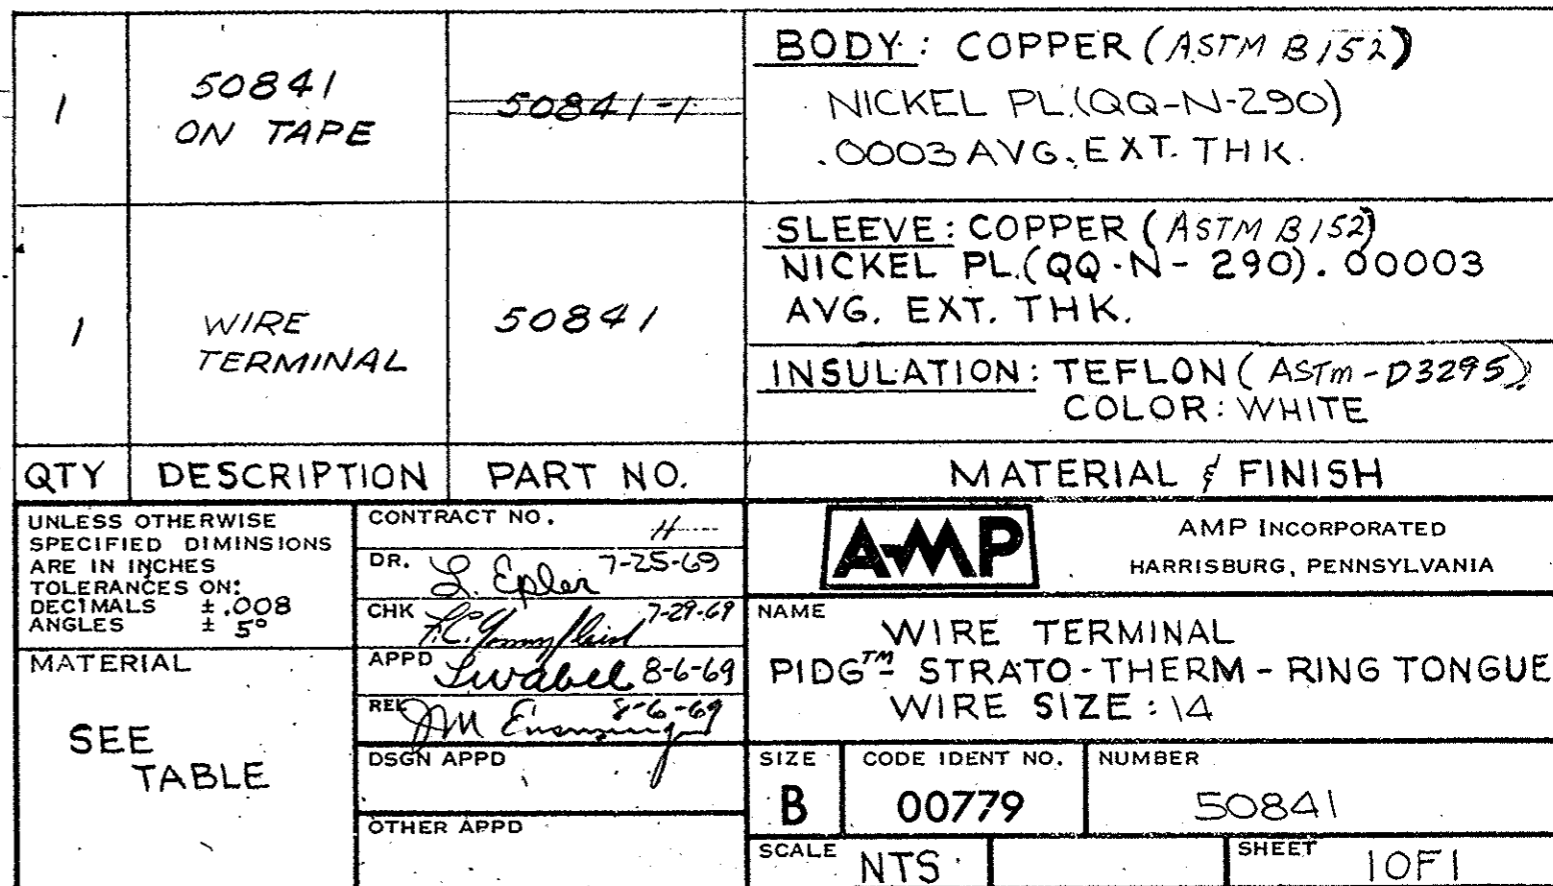 1
50841
ON TAPE
50841-1
BODY: COPPER (ASTM B152)
NICKEL PL.(QQ-N-290)
.0003 AVG. EXT. THK.
1
WIRE
TERMINAL
50841
SLEEVE: COPPER (ASTM B152)
NICKEL PL.(QQ-N-290).00003
AVG. EXT. THK.
INSULATION: TEFLON (ASTM-D3295)
COLOR: WHITE
QTY
DESCRIPTION
PART NO.
MATERIAL & FINISH
UNLESS OTHERWISE
SPECIFIED DIMINSIONS
ARE IN INCHES
TOLERANCES ON:
DECIMALS ±.008
ANGLES ± 5°
MATERIAL
SEE
TABLE
CONTRACT NO.
DR. L. Epler 7-25-69
CHK 7-29-69
APPD 8-6-69
REL 8-6-69
DSGN APPD
OTHER APPD
AMP
AMP INCORPORATED
HARRISBURG, PENNSYLVANIA
NAME
WIRE TERMINAL
PIDG™ STRATO-THERM-RING TONGUE
WIRE SIZE: 14
SIZE
B
CODE IDENT NO.
00779
NUMBER
50841
SCALE NTS
SHEET 1 OF 1